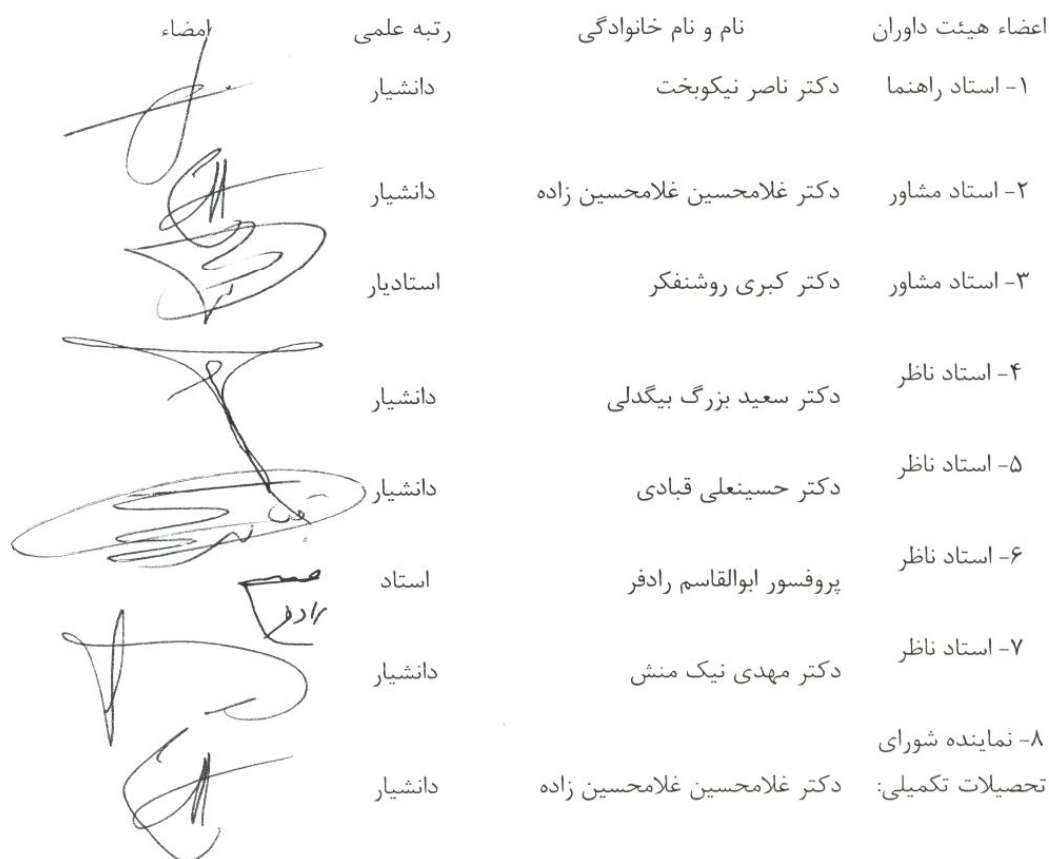 اعضاء هیئت داوران نام و نام خانوادگی رتبه علمی امضاء
۱- استاد راهنما دکتر ناصر نیکوبخت دانشیار
۲- استاد مشاور دکتر غلامحسین غلامحسین زاده دانشیار
۳- استاد مشاور دکتر کبری روشنفکر استادیار
۴- استاد ناظر دکتر سعید بزرگ بیگدلی دانشیار
۵- استاد ناظر دکتر حسینعلی قبادی دانشیار
۶- استاد ناظر پروفسور ابوالقاسم رادفر استاد
رادفر
۷- استاد ناظر دکتر مهدی نیک منش دانشیار
۸- نماینده شورای
تحصیلات تکمیلی: دکتر غلامحسین غلامحسین زاده دانشیار